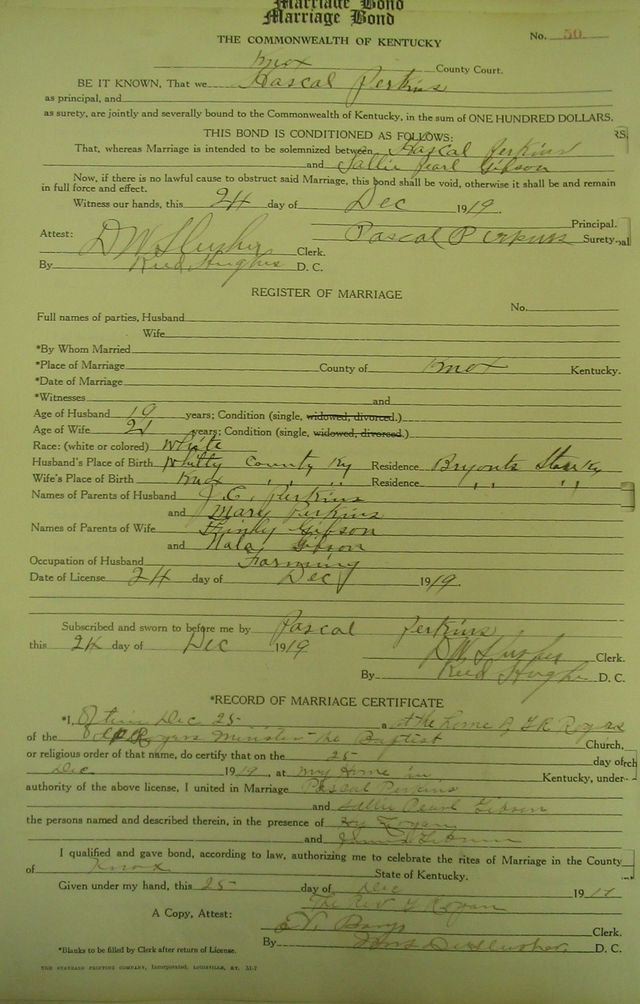 Marriage Bond
Marriage Bond
THE COMMONWEALTH OF KENTUCKY
No. 50
Knox County Court.
BE IT KNOWN, That we Pascal Perkins
as principal, and
as surety, are jointly and severally bound to the Commonwealth of Kentucky, in the sum of ONE HUNDRED DOLLARS.
THIS BOND IS CONDITIONED AS FOLLOWS:
That, whereas Marriage is intended to be solemnized between Pascal Perkins
and Sallie Pearl Gibson
Now, if there is no lawful cause to obstruct said Marriage, this bond shall be void, otherwise it shall be and remain
in full force and effect.
Witness our hands, this 24 day of Dec 1919.
Principal.
Attest: D W Slusher Clerk. Pascal Perkins Surety
By Reed Hughes D. C.
REGISTER OF MARRIAGE
No.
Full names of parties, Husband
Wife
*By Whom Married
*Place of Marriage County of Knox Kentucky.
*Date of Marriage
*Witnesses and
Age of Husband 19 years; Condition (single, widowed, divorced.)
Age of Wife 21 years; Condition (single, widowed, divorced.)
Race: (white or colored) White
Husband's Place of Birth Whitly County Ky Residence Bryants Ky
Wife's Place of Birth Knox " " Residence " "
Names of Parents of Husband J. C. Perkins
and Mary Perkins
Names of Parents of Wife Gibson
and Gibson
Occupation of Husband Farming
Date of License 24 day of Dec 1919.
Subscribed and sworn to before me by Pascal Perkins
this 24 day of Dec 1919
D W Slusher Clerk.
By Reed Hughes D. C.
*RECORD OF MARRIAGE CERTIFICATE
*I, Dec 25 a at the home of
of the Minister the Baptist Church,
or religious order of that name, do certify that on the 25 day of
Dec 1919, at my Home in Kentucky, under
authority of the above license, I united in Marriage Pascal Perkins
and Sallie Pearl Gibson
the persons named and described therein, in the presence of
and
I qualified and gave bond, according to law, authorizing me to celebrate the rites of Marriage in the County
of Knox State of Kentucky.
Given under my hand, this 25 day of Dec 19
The Rev
A Copy, Attest: Clerk.
By D. C.
*Blanks to be filled by Clerk after return of License.
THE STANDARD PRINTING COMPANY, Incorporated, LOUISVILLE, KY.